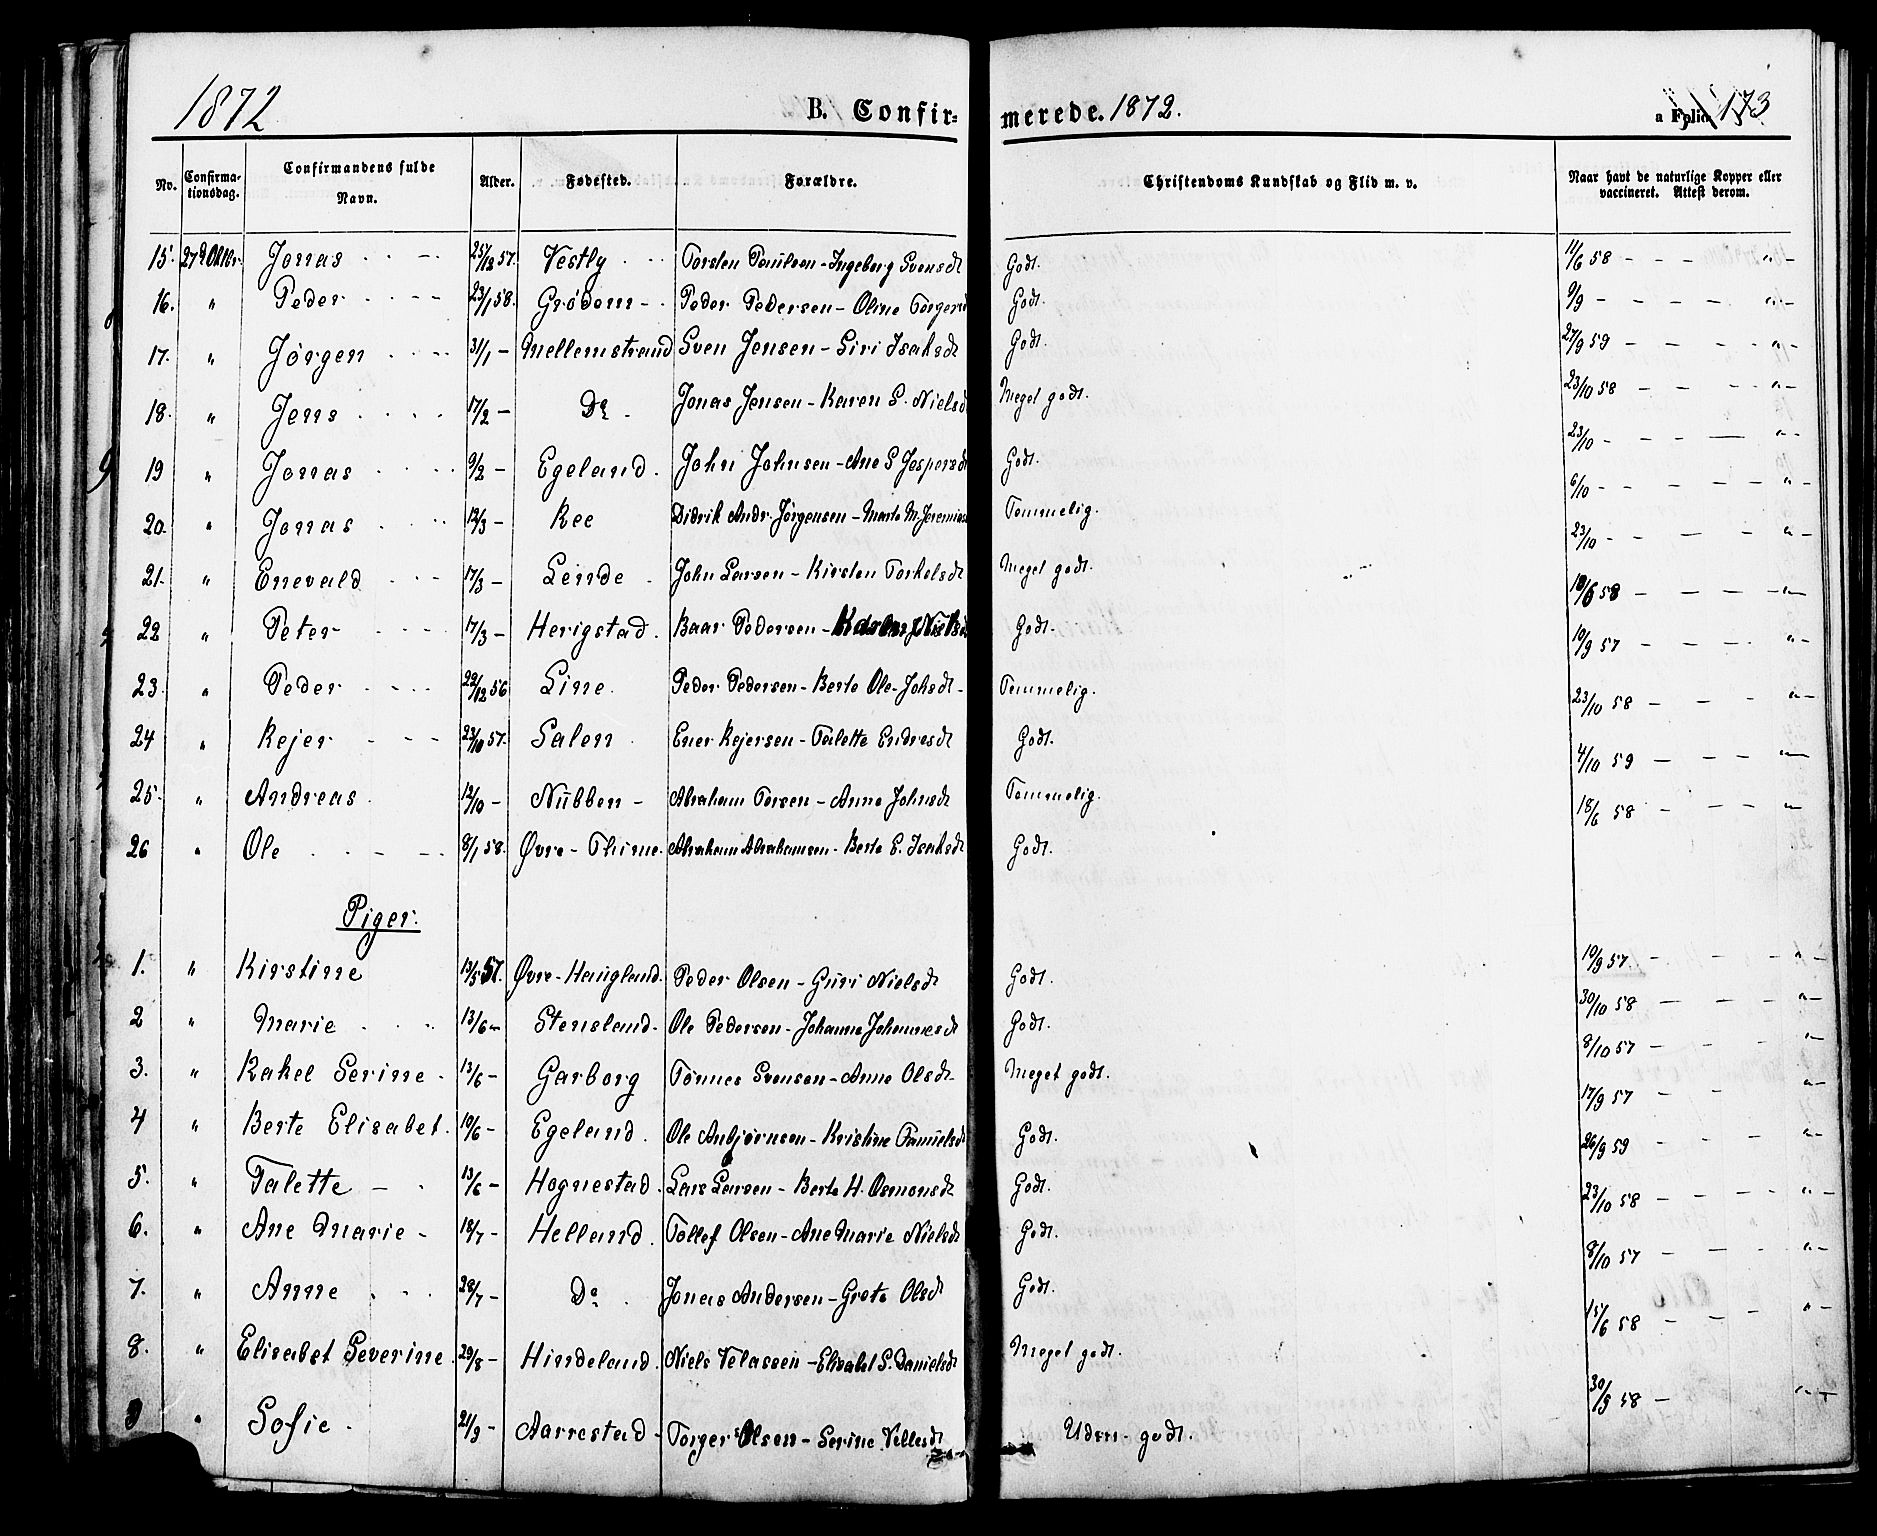 1872 B. Confirmerede. 1872. a Folio 173
No. Confirmationsdag. Confirmandens fulde Navn. Alder. Fødested. Forældre. Christendoms Kundskab og Flid m. v. Naar havt de naturlige Kopper eller vaccineret. Attest derom.
15. 27d Oktbr. Jonas 25/12 57. Vestly Torsten Paulsen - Ingeborg Svensdt Godt. 11/6 58 - - - " -
16. " Peder 23/1 58. Grødem - Peder Pedersen - Oline Torgersd Godt. 9/9 - - - - " -
17. " Jørgen 31/1 - Mellemstrand Sven Jensen - Siri Isaksdt Godt. 27/9 59 - - - " -
18. " Jens 17/2 - Do. Jonas Jensen - Karen S. Nielsd Meget godt. 23/10 58 - - - " -
19 " Jonas 9/2 - Egeland. John Johnsen - Ane S Jespersdt Godt. 23/10 - - - - " -
20. " Jonas 12/3 - Ree Didrik Andr. Jørgensen - Marte M. Jeremias Temmelig. 6/10 - - - - " -
21. " Enevald 17/3 - Lende John Larsen - Kirsten Torkelsdt Meget godt. 23/10 - - - - " -
22 " Peter 17/3 - Herigstad. Baar Pedersen - Nielsd Godt. 10/6 58 - - - "
23. " Peder 22/12 56 Line. Peder Pedersen - Berte Ole-Johsdt - Temmelig. 10/9 57 - - - " -
24 " Rejer 23/10 57. Salen Ener Rejersen - Talette Endresdt Godt. 23/10 58 - - - " -
25. " Andreas. 12/10 - Nubben - Abraham Torsen - Anne Johnsdt Temmelig. 4/10 59 - - - "
26 " Ole 8/1 58. Øvre - Thime. Abraham Abrahamsen - Berte E. Isaksdt Godt. 18/6 58 - - - "
Piger.
1. " Kirstine 13/5 57. Øvre - Haugland. Peder Olsen - Guri Nielsdt Godt. 10/9 57 - - - " -
2 " Marie 13/6 - Stensland. Ole Pedersen - Johanne Johannesdt Godt. 30/10 58 - - - " -
3. " Rakel Serine - 13/6 - Garborg Tønnes Svensen - Anne Olsdt - Meget godt. 8/10 57 - - - " -
4 " Berte Elisabet. 10/6 - Egeland. Ole Anbjørnsen - Kristine Samuelsdt Godt. 17/9 57 - - " -
5. " Talette - 13/6 - Hognestad. Lars Larsen - Berte H. Osmonsdt Godt. 26/9 59 - - - " -
6. " Ane Marie - 18/7 - Helland. Tollef Olsen - Ane Marie Nielsdt Godt. 23/10 58 - - - " -
7. " Anne 28/7 - Do. Jonas Andersen - Grete Olsdt Godt. 8/10 57 - - - " -
8. " Elisabet Severine. 29/8 - Hindeland. Niels Velassen - Elisabet S. Danielsdt Meget godt. 15/6 58 - - - " -
9 " Sofie. 21/9 - Aarrestad - Torger Olsen - Serine Vellesdt Udm. godt. 30/9 58 - " -